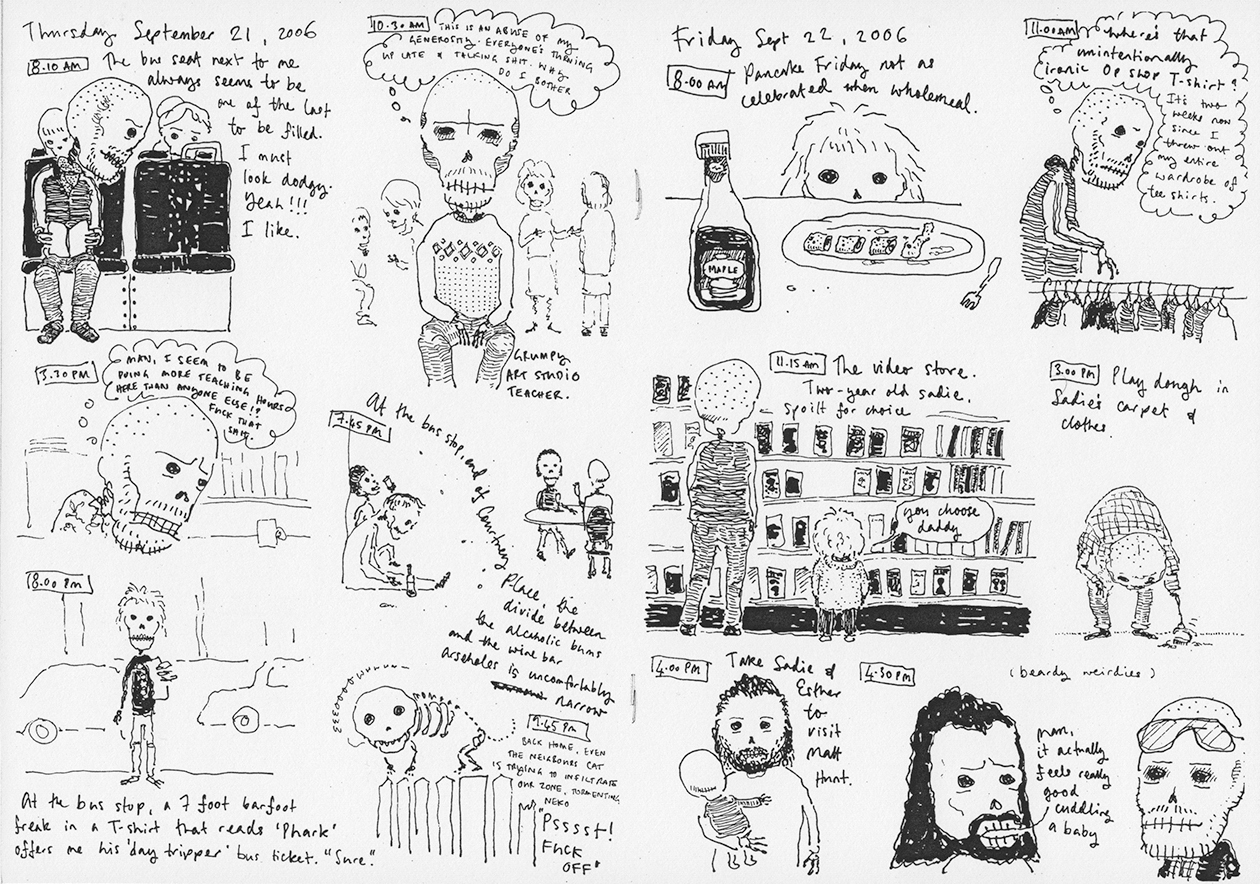 Thursday September 21, 2006
8.10 AM
The bus seat next to me
always seems to be
one of the last
to be filled.
I must
look dodgy.
Yeah!!!
I like.
10.30 AM
THIS IS AN ABUSE OF MY
GENEROSITY. EVERYONE'S TURNING
UP LATE & TALKING SHIT. WHY
DO I BOTHER
GRUMPY
ART STUDIO
TEACHER.
3.30 PM
MAN, I SEEM TO BE
DOING MORE TEACHING HOURS
HERE THAN ANYONE ELSE!?
FUCK THAT
SHIT.
7.45 PM
At the bus stop, end of Courtney
Place, the
divide between
the alcoholic bums
and the wine bar
arseholes is uncomfortably
narrow
8.00 PM
At the bus stop, a 7 foot barfoot
freak in a T-shirt that reads 'Phark'
offers me his 'day tripper' bus ticket. "Sure".
9.45 PM
BACK HOME, EVEN
THE NEIGHBOURS CAT
IS TRYING TO INFILTRATE
OUR ZONE, TORMENTING
NEKO
"Psssst!
FUCK
OFF"
Friday Sept 22, 2006
8.00 AM
Pancake Friday not as
celebrated when wholemeal.
MAPLE
11.00 AM
Where's that
unintentionally
ironic Op shop T-shirt?
It's two
weeks now
since I
threw out
my entire
wardrobe of
tee shirts.
11.15 AM
The video store.
Two-year old Sadie,
spoilt for choice
you choose
daddy
3.00 PM
Play dough in
Sadie's carpet &
clothes.
4.00 PM
Take Sadie &
Esther
to
visit
Matt
Hunt.
4.30 PM
(beardy weirdies)
man,
it actually
feels really
good
cuddling
a baby